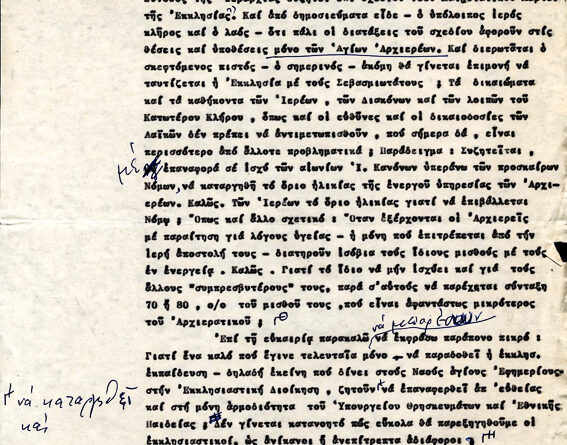 τῆς Ἐκκλησίας? Καί ἀπό δημοσιεύματα εἶδε - ὁ ὑπόλοιπος ἱερός
κλῆρος καί ὁ λαός - ὅτι πάλι οἱ διατάξεις τοῦ σχεδίου ἀφοροῦν στίς
θέσεις καί ὑποθέσεις μόνο τῶν Ἁγίων Ἀρχιερέων. Καί διερωτᾶται ὁ
σκεφτόμενος πιστός - ὁ σημερινός - ἀκόμη θά γίνεται ἐπιμονή νά
ταυτίζεται ἡ Ἐκκλησία μέ τούς Σεβασμιωτάτους ; Τά δικαιώματα
καί τά καθήκοντα τῶν Ἱερέων , τῶν Διακόνων καί τῶν λοιπῶν τοῦ
Κατωτέρου Κλήρου , ὅπως καί οἱ εὐθῦνες καί οἱ δικαιοδοσίες τῶν
Λαϊκῶν δέν πρέπει νά ἀντιμετωπισθοῦν , πού σήμερα δά , εἶναι
περισσότερο ἀπό ἄλλοτε προβληματικά ; Παράδειγμα : Συζητεῖται ,
μέ ἐπαναφορά σέ ἰσχύ τῶν αἰωνίων Ἱ. Κανόνων ὑπεράνω τῶν προσκαίρων
Νόμων, νά καταργηθῆ τό ὅριο ἡλικίας τῆς ἐνεργοῦ ὑπηρεσίας τῶν Ἀρχι-
ερέων. Καλῶς. Τῶν Ἱερέων τό ὅριο ἡλικίας γιατί νά ἐπιβάλλεται
Νόμῳ ; Ὅπως καί ἄλλο σχετικό : Ὅταν ἐξέρχονται οἱ Ἀρχιερεῖς
μέ παραίτηση γιά λόγους ὑγείας - ἡ μόνη πού ἐπιτρέπεται ἀπό τήν
ἱερή ἀποστολή τους - διατηροῦν ἰσόβια τούς ἴδιους μισθούς μέ τούς
ἐν ἐνεργείᾳ . Καλῶς . Γιατί τό ἴδιο νά μήν ἰσχύει καί γιά τούς
ἄλλους "συμπρεσβυτέρους" τους, παρά σ'αὐτούς νά παρέχεται σύνταξη
70 ἤ 80 , ο/ο τοῦ μισθοῦ τους ,πού εἶναι ἀφαντάστως μικρότερος
τοῦ Ἀρχιερατικοῦ ;
Ἐπί τῇ εὐκαιρίᾳ παρακαλῶ νά ἐκφράσω παράπονο πικρό :
Γιατί ἕνα καλό πού ἔγινε τελευταῖα μόνο - νά παραδοθεῖ ἡ ἐκκλησ.
ἐκπαίδευση - δηλαδή ἐκείνη πού δίνει στούς Ναούς ἁγίους Ἐφημερίους-
στήν Ἐκκλησιαστική Διοίκηση , ζητοῦν νά ἐπαναφερθεῖ ἀπ'εὐθείας
νά καταργηθεῖ
καί
καί στή μόνη ἁρμοδιότητα τοῦ Ὑπουργείου Θρησκευμάτων καί Ἐθνικῆς
Παιδείας ; Δέν γίνεται κατανοητό πώς εὔκολα θά παρεξηγηθοῦμε οἱ
ἐκκλησιαστικοί, ὡς ἀνίκανοι ἤ ἀνεπίτρεπτα ἀδιάφοροι ;